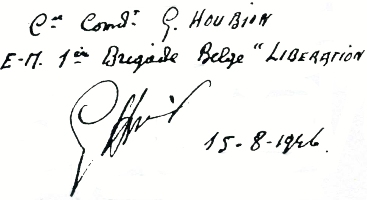 Cⁿᵉ Comdᵗ G. HOUBION
E-M. 1ᵉʳᵉ Brigade Belge "LIBERATION
15-8-1946.